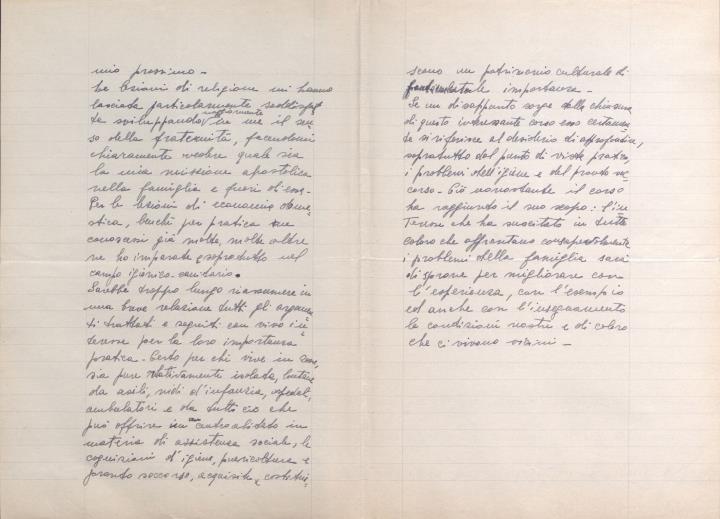 mio prossimo -
Le lezioni di religione mi hanno
lasciata particolarmente soddisfat
ta sviluppando in me il sen
so della fraternità, facendomi
chiaramente vedere quale sia
la mia missione apostolica
nella famiglia e fuori di essa -
Per le lezioni di economia dome
stica, benché per pratica ne
conoscessi già molte, molte altre
ne ho imparate e sopratutto nel
campo igienico-sanitario.
Sarebbe troppo lungo riassumere in
una breve relazione tutti gli argomen
ti trattati e seguiti con vivo in
teresse per la loro importanza
pratica - Certo per chi vive in zone,
sia pure relativamente isolata, lontane
da asili, nidi d'infanzia, ospedali,
ambulatori e da tutto ciò che
può offrire un centro abitato in
materia di assistenza sociale, le
cognizioni d'igiene, puericoltura e
pronto soccorso, acquisite, costitui-
scono un patrimonio culturale di
particolare importanza -
Se un disappunto sorge alla chiusura
di questo interessante corso esso certamen
te si riferisce al desiderio di approfondire,
sopratutto dal punto di vista pratico,
i problemi dell'igiene e del pronto soc
corso - Ciò nonostante il corso
ha raggiunto il suo scopo: l'in
teresse che ha suscitato in tutte
coloro che affrontano consapevolmente
i problemi della famiglia sarà
di sprone per migliorare con
l'esperienza, con l'esempio
ed anche con l'insegnamento
le condizioni nostre e di coloro
che ci vivono vicini -